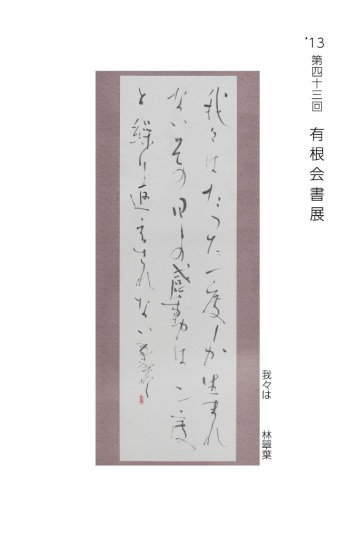 '13
第四十三回
有根会書展
我々はたった一度しか生まれ
ないその日々の感動は二度
と繰り返えされない
我々は
林翠葉